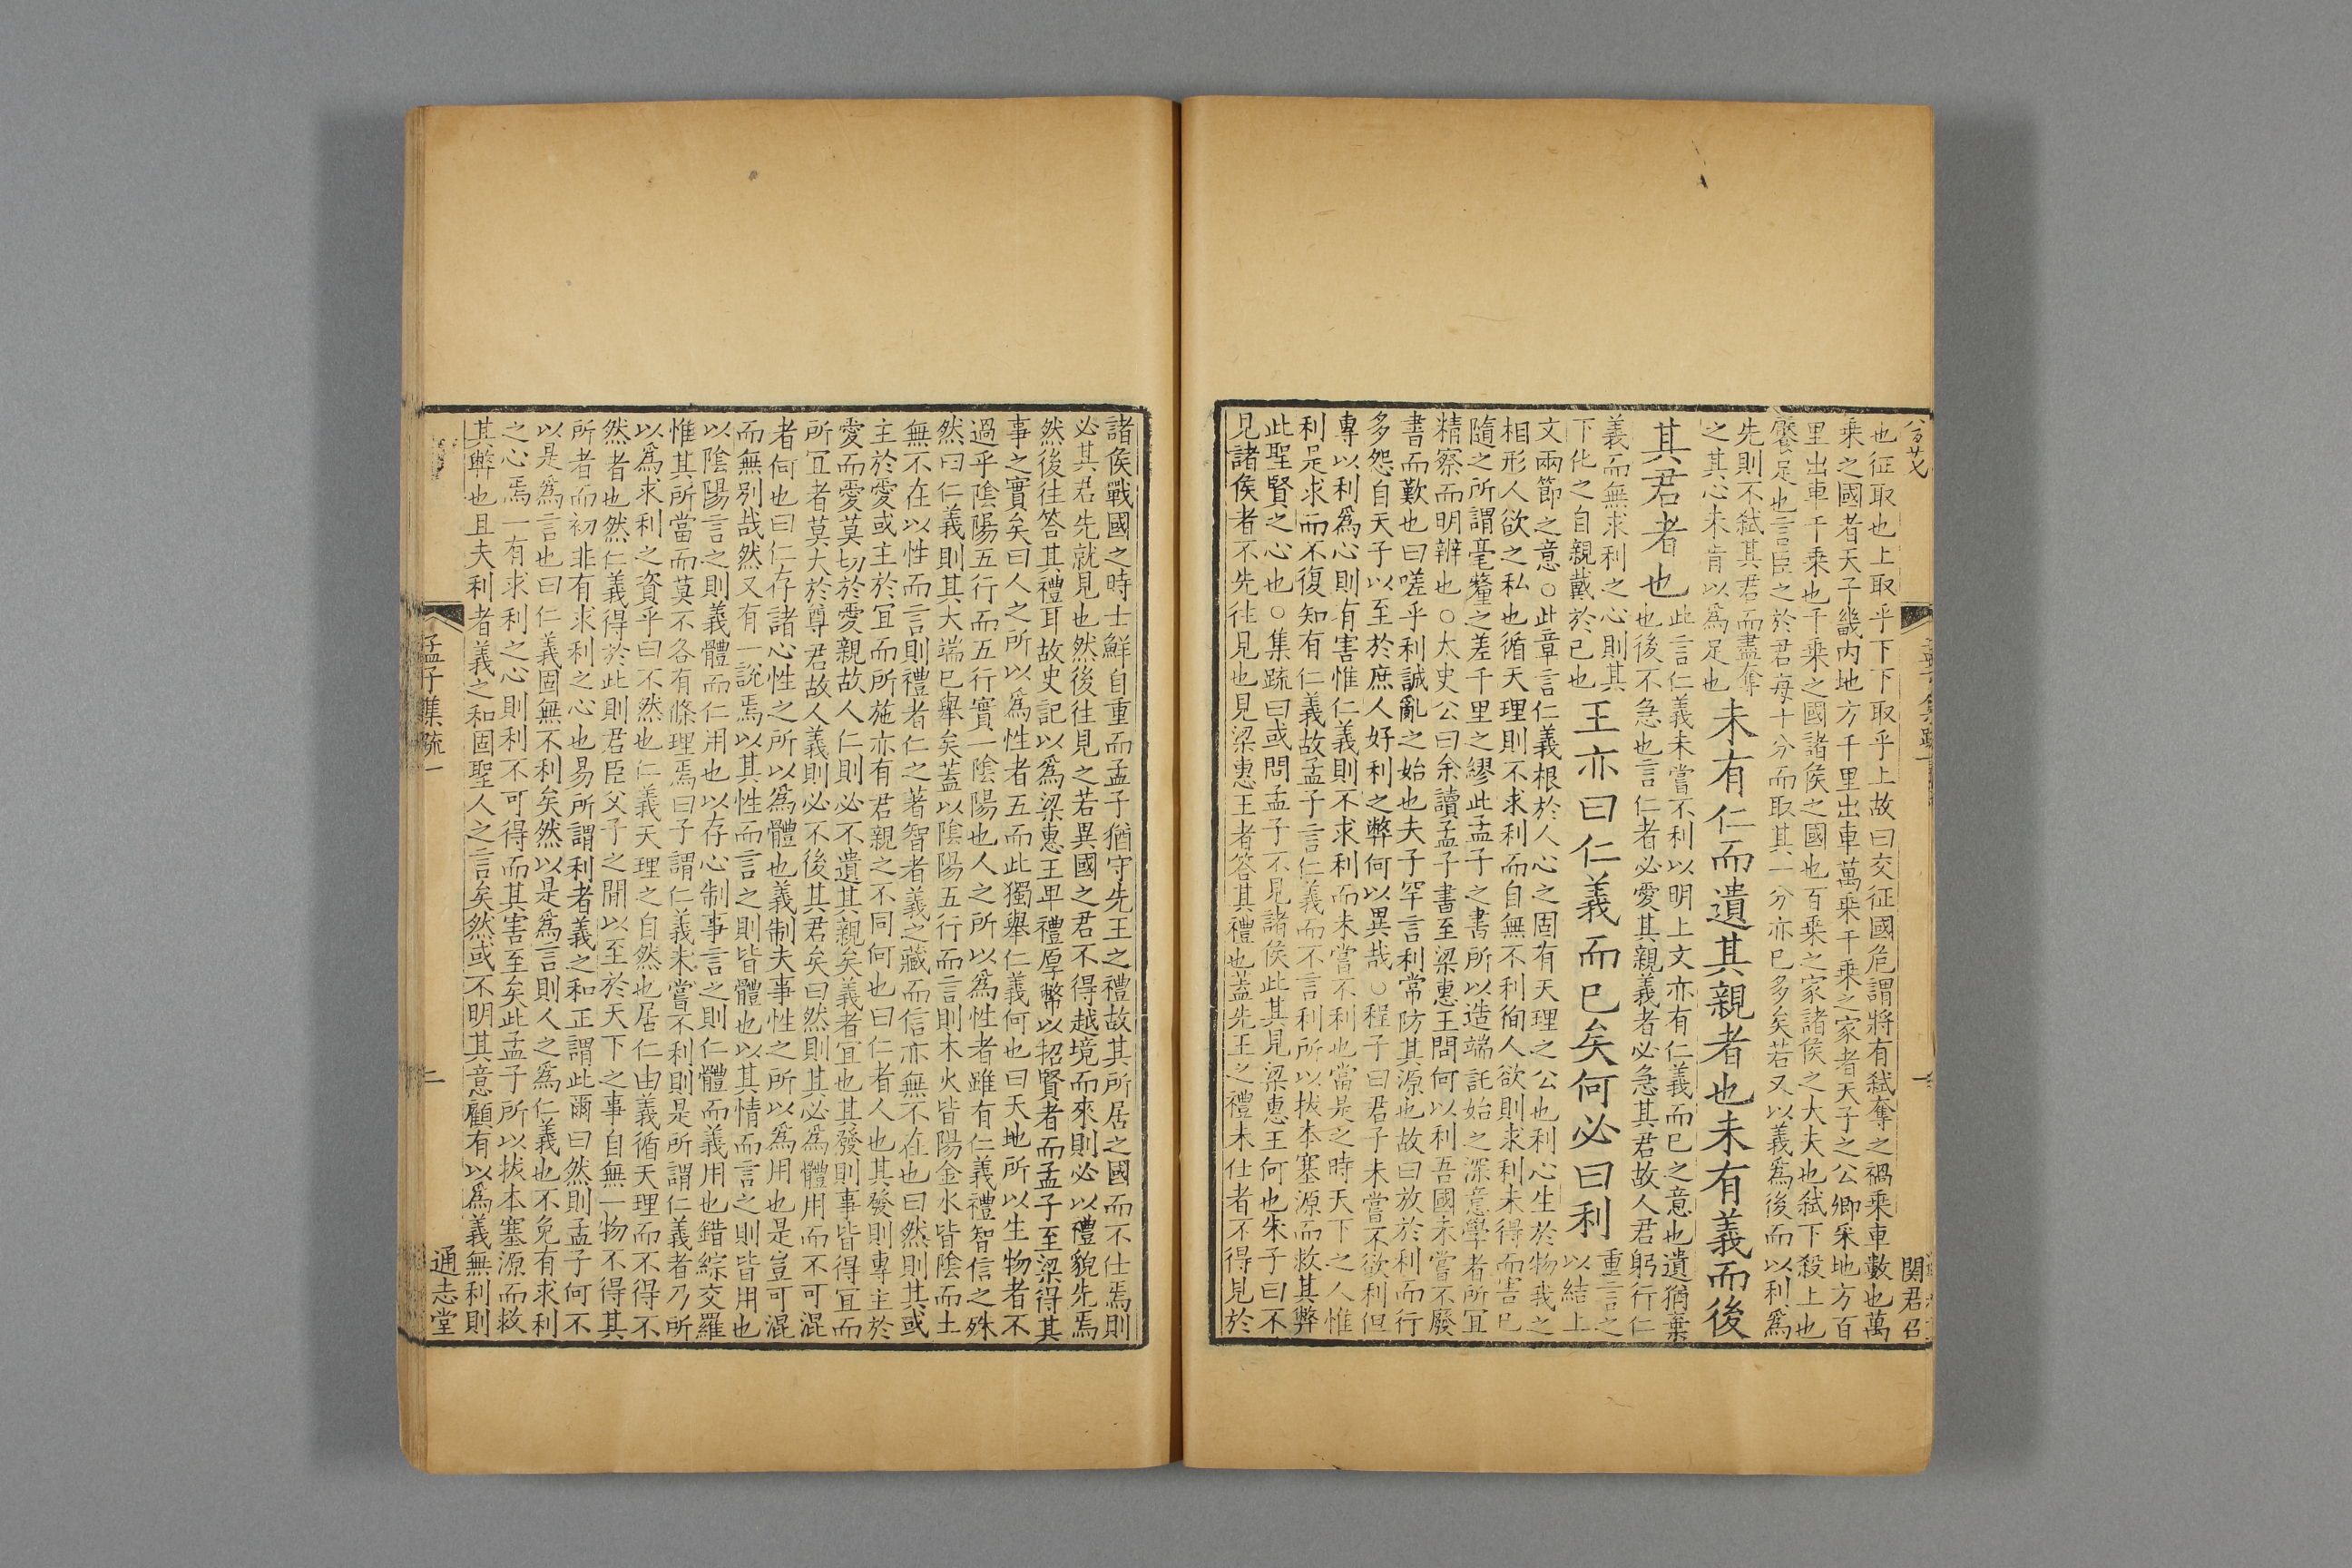 也征取也上取乎下下取乎上故曰交征國危謂將有弑奪之禍乘車數也萬
乘之國者天子畿内地方千里出車萬乘千乘之家者天子之公卿采地方百
里出車千乘也千乘之國諸侯之國也百乘之家諸侯之大夫也弑下殺上也
饜足也言臣之於君每十分而取其一分亦已多矣若又以義爲後而以利爲
先則不弑其君而盡奪
之其心未肯以爲足也
未有仁而遺其親者也未有義而後
其君者也
此言仁義未嘗不利以明上文亦有仁義而已之意也遺猶棄
也後不急也言仁者必愛其親義者必急其君故人君躬行仁
義而無求利之心則其
下化之自親戴於已也
王亦曰仁義而已矣何必曰利
重言之
以結上
文兩節之意○此章言仁義根於人心之固有天理之公也利心生於物我之
相形人欲之私也循天理則不求利而自無不利徇人欲則求利未得而害已
隨之所謂毫釐之差千里之繆此孟子之書所以造端託始之深意學者所宜
精察而明辨也○太史公曰余讀孟子書至梁惠王問何以利吾國未嘗不廢
書而歎也曰嗟乎利誠亂之始也夫子罕言利常防其源也故曰放於利而行
多怨自天子以至於庶人好利之弊何以異哉○程子曰君子未嘗不欲利但
專以利爲心則有害惟仁義則不求利而未嘗不利也當是之時天下之人惟
利是求而不復知有仁義故孟子言仁義而不言利所以拔本塞源而救其弊
此聖賢之心也○集疏曰或問孟子不見諸侯此其見梁惠王何也朱子曰不
見諸侯者不先往見也見梁惠王者答其禮也蓋先王之禮未仕者不得見於
関君召
諸侯戰國之時士鮮自重而孟子猶守先王之禮故其所居之國而不仕焉則
必其君先就見也然後往見之若異國之君不得越境而來則必以禮貌先焉
然後往答其禮耳故史記以爲梁惠王卑禮厚幣以招賢者而孟子至梁得其
事之實矣曰人之所以爲性者五而此獨舉仁義何也曰天地所以生物者不
過乎陰陽五行而五行實一陰陽也人之所以爲性者雖有仁義禮智信之殊
然曰仁義則其大端已舉矣蓋以陰陽五行而言則木火皆陽金水皆陰而土
無不在以性而言則禮者仁之著智者義之藏而信亦無不在也曰然則其或
主於愛或主於宜而所施亦有君親之不同何也曰仁者人也其發則專主於
愛而愛莫切於愛親故人仁則必不遺其親矣義者宜也其發則事皆得宜而
所宜者莫大於尊君故人義則必不後其君矣曰然則其必爲體用而不可混
者何也曰仁存諸心性之所以爲體也義制夫事性之所以爲用也是豈可混
而無別哉然又有一說焉以其性而言之則皆體也以其情而言之則皆用也
以陰陽言之則義體而仁用也以存心制事言之則仁體而義用也錯綜交羅
惟其所當而莫不各有條理焉曰子謂仁義未嘗不利則是所謂仁義者乃所
以爲求利之資乎曰不然也仁義天理之自然也居仁由義循天理而不得不
然者也然仁義得於此則君臣父子之間以至於天下之事自無一物不得其
所者而初非有求利之心也易所謂利者義之和正謂此爾曰然則孟子何不
以是爲言也曰仁義固無不利矣然以是爲言則人之爲仁義也不免有求利
之心焉一有求利之心則利不可得而其害至矣此孟子所以拔本塞源而救
其弊也且夫利者義之和固聖人之言矣然或不明其意顧有以爲義無利則
孟子集疏一
二
通志堂